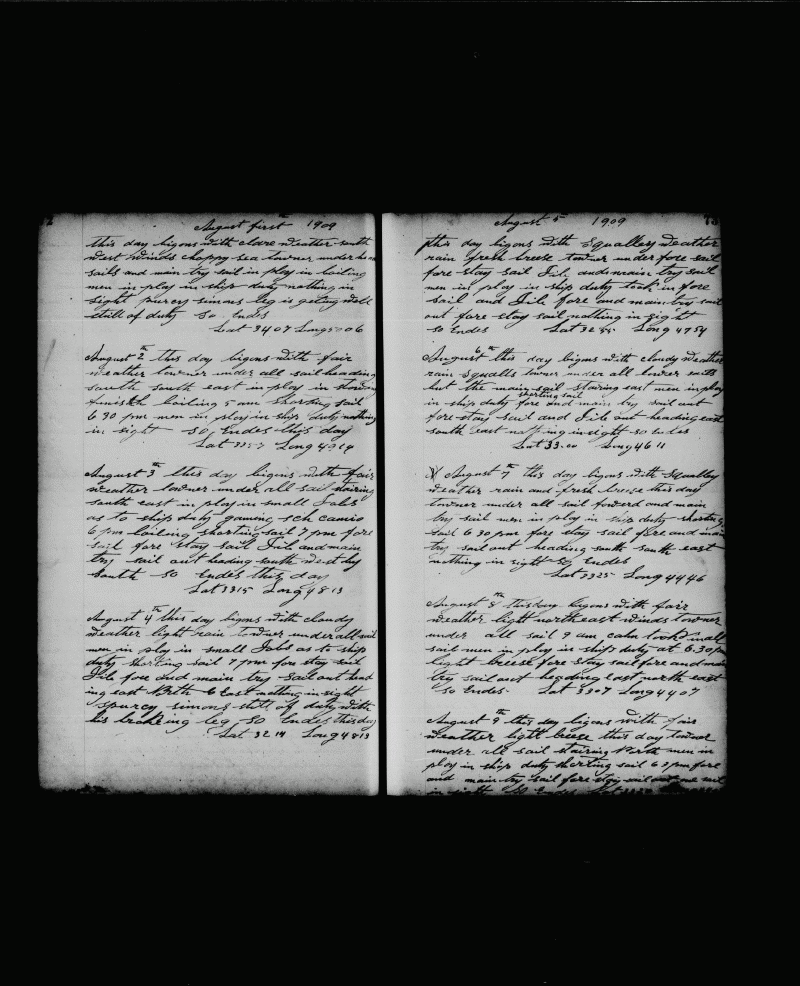 August first 1909
this day bigons with clare weather south
west winds choppy sea towner under
sails and main try sail in ploy in boiling
men in ploy in ship duty nothing in
sight purcy simons leg is well
still of duty So Ends
Lat 3407 Long 5006
August 2th this day bigons with fair
weather towner under all sail heading
south south east in ploy in
finisth boiling 5 am shorting sail
6 30 pm men in ploy in ship duty nothing
in sight So Ends this day
Lat Long 4914
August 3th this day bigons with fair
weather towner under all sail stairing
south east in ploy in small Jobs
as to ship duty gaming sch
6 pm boiling shorting sail 7 pm fore
sail fore stay sail Jib and main
try sail out heading south west by
South So Ends this day
Lat 3315 Long 4813
August 4th this day bigons with cloudy
weather light rain towner under all sail
men in ploy in small Jobs as to ship
duty shorting sail 7 pm fore stay sail
Jib fore and main try sail out head
ing east North East nothing in sight
spurcy simons still of duty with
his brokking leg So Ends this day
Lat 32 14 Long 4813
August 5 1909 73
this day bigons with Squalley weather
rain fresh breese towner under fore sail
fore stay sail Jib and main try sail
men in ploy in ship duty took in fore
sail and Jib fore and main try sail
out fore stay sail nothing in sight
So Ends Lat Long 4754
August 6th this day bigons with cloudy weather
rain squalls towner under all lower sails
but the main sail stairing east men in ploy
shorting sail
in ship duty fore and main try sail out
fore stay sail and Jib out heading east
south east nothing in sight So Ends
Lat 33.00 Long 46 11
August 7th this day bigons with Squalley
weather rain and fresh breese this day
towner under all sail foward and main
try sail men in ploy in ship duty shorting
sail 6 30 pm fore stay sail fore and main
try sail out heading south south east
nothing in sight So Ends
Lat 3325 Long 4446
August 8th this day bigons with fair
weather light northeast winds towner
under all sail 9 am calm took in all
sail men in ploy in ship duty at 6.30 pm
light breese fore stay sail fore and main
try sail out heading east north east
So Ends Lat 3307 Long 4407
August 9th this day bigons with fair
weather light breese this day towner
under all sail stairing North men in
ploy in ship duty shorting sail 6 pm fore
and main try sail fore stay sail out one sail
in sight So Ends Lat